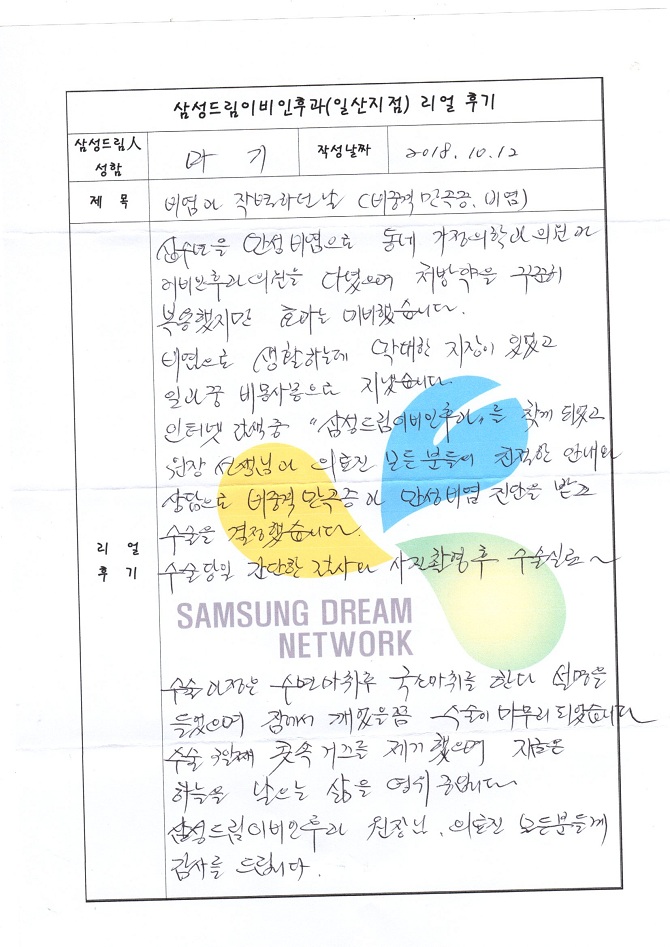 삼성드림이비인후과(일산지점) 리얼 후기
삼성드림人
성함
마 기
작성날짜
2018. 10. 12
제 목
비염아 작별하던날 (비중격만곡증, 비염)
십수년을 만성비염으로 동네 가정의학과 의원과
이비인후과의원을 다녔으며 처방약을 꾸준히
복용했지만 효과는 미비했습니다.
비염으로 생활하는데 막대한 지장이 있었고
코 비뿜사용으로 지냈습니다.
인터넷 검색중 "삼성드림이비인후과"를 찾게 되었고
원장 선생님과 의료진 모든 분들의 친절한 안내와
상담으로 비중격만곡증과 만성비염 진단을 받고
수술을 결정했습니다.
수술당일 간단한 검사와 사진촬영후 수술실로~
리 얼
후 기
SAMSUNG DREAM
NETWORK
수술과정은 수면마취후 국소마취를 한다 설명을
들었으며 잠에서 깨었을쯤 수술이 마무리 되었습니다
수술 콧속 거즈를 제거 했으며 지금은
하늘을 날으는 삶을 중입니다
삼성드림이비인후과 원장님, 의료진 모든분들께
감사를 드립니다.